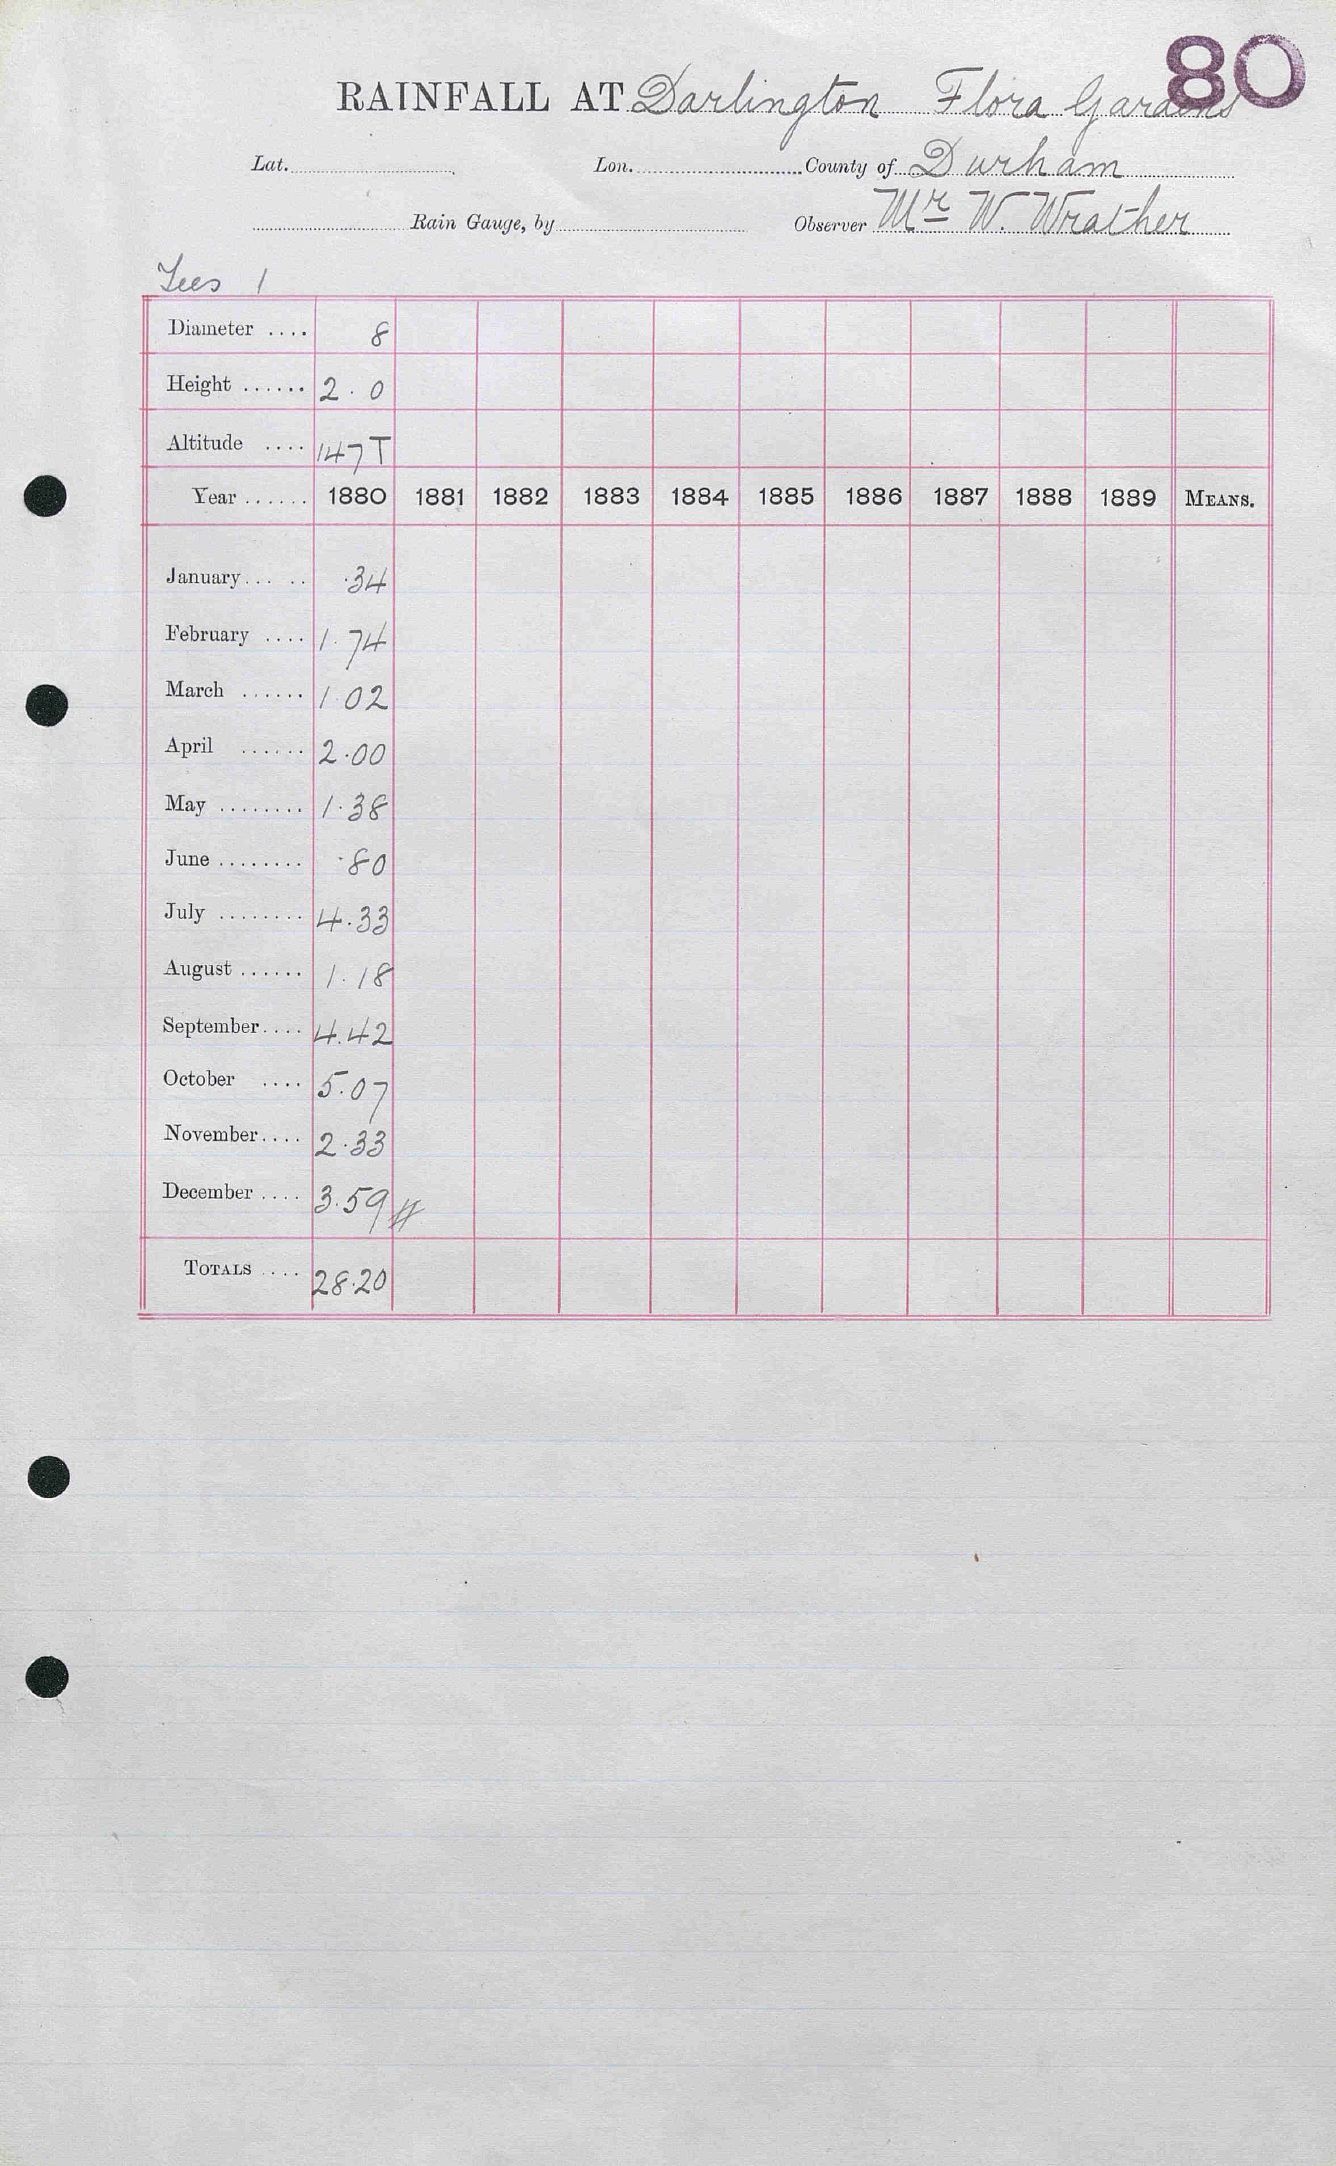 80
RAINFALL AT Darlington Flora Gardens
Lat. Lon. County of Durham
Rain Gauge, by Observer Mr W. Wrather
Tees 1
Diameter .... 8
Height ...... 2.0
Altitude .... 147 T
Year ...... 1880 1881 1882 1883 1884 1885 1886 1887 1888 1889 MEANS.
January... .. .34
February .... 1.74
March ...... 1.02
April ...... 2.00
May ........ 1.38
June ........ .80
July ........ 4.33
August ...... 1.18
September.... 4.42
October .... 5.07
November.... 2.33
December .... 3.59 #
TOTALS .... 28.20